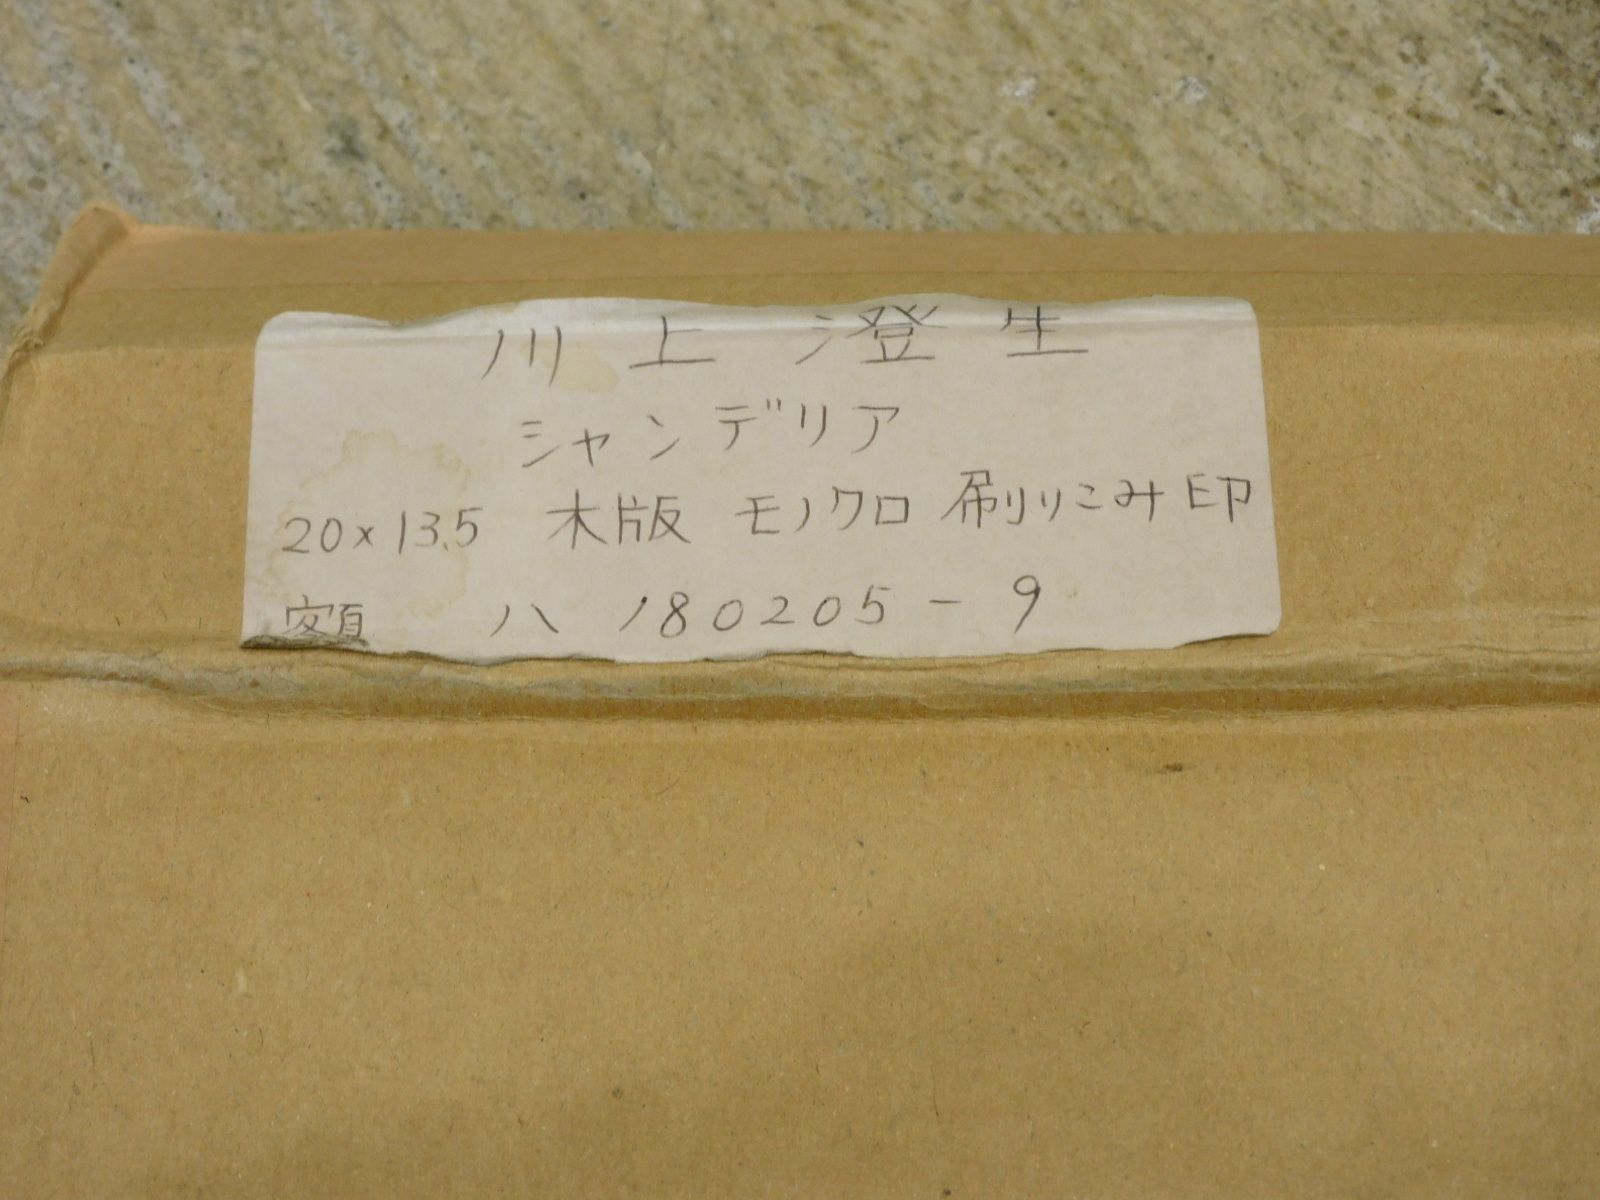 川上澄生
シャンデリア
20×13.5 木版 モノクロ 刷りこみ印
額 ハ 180205-9